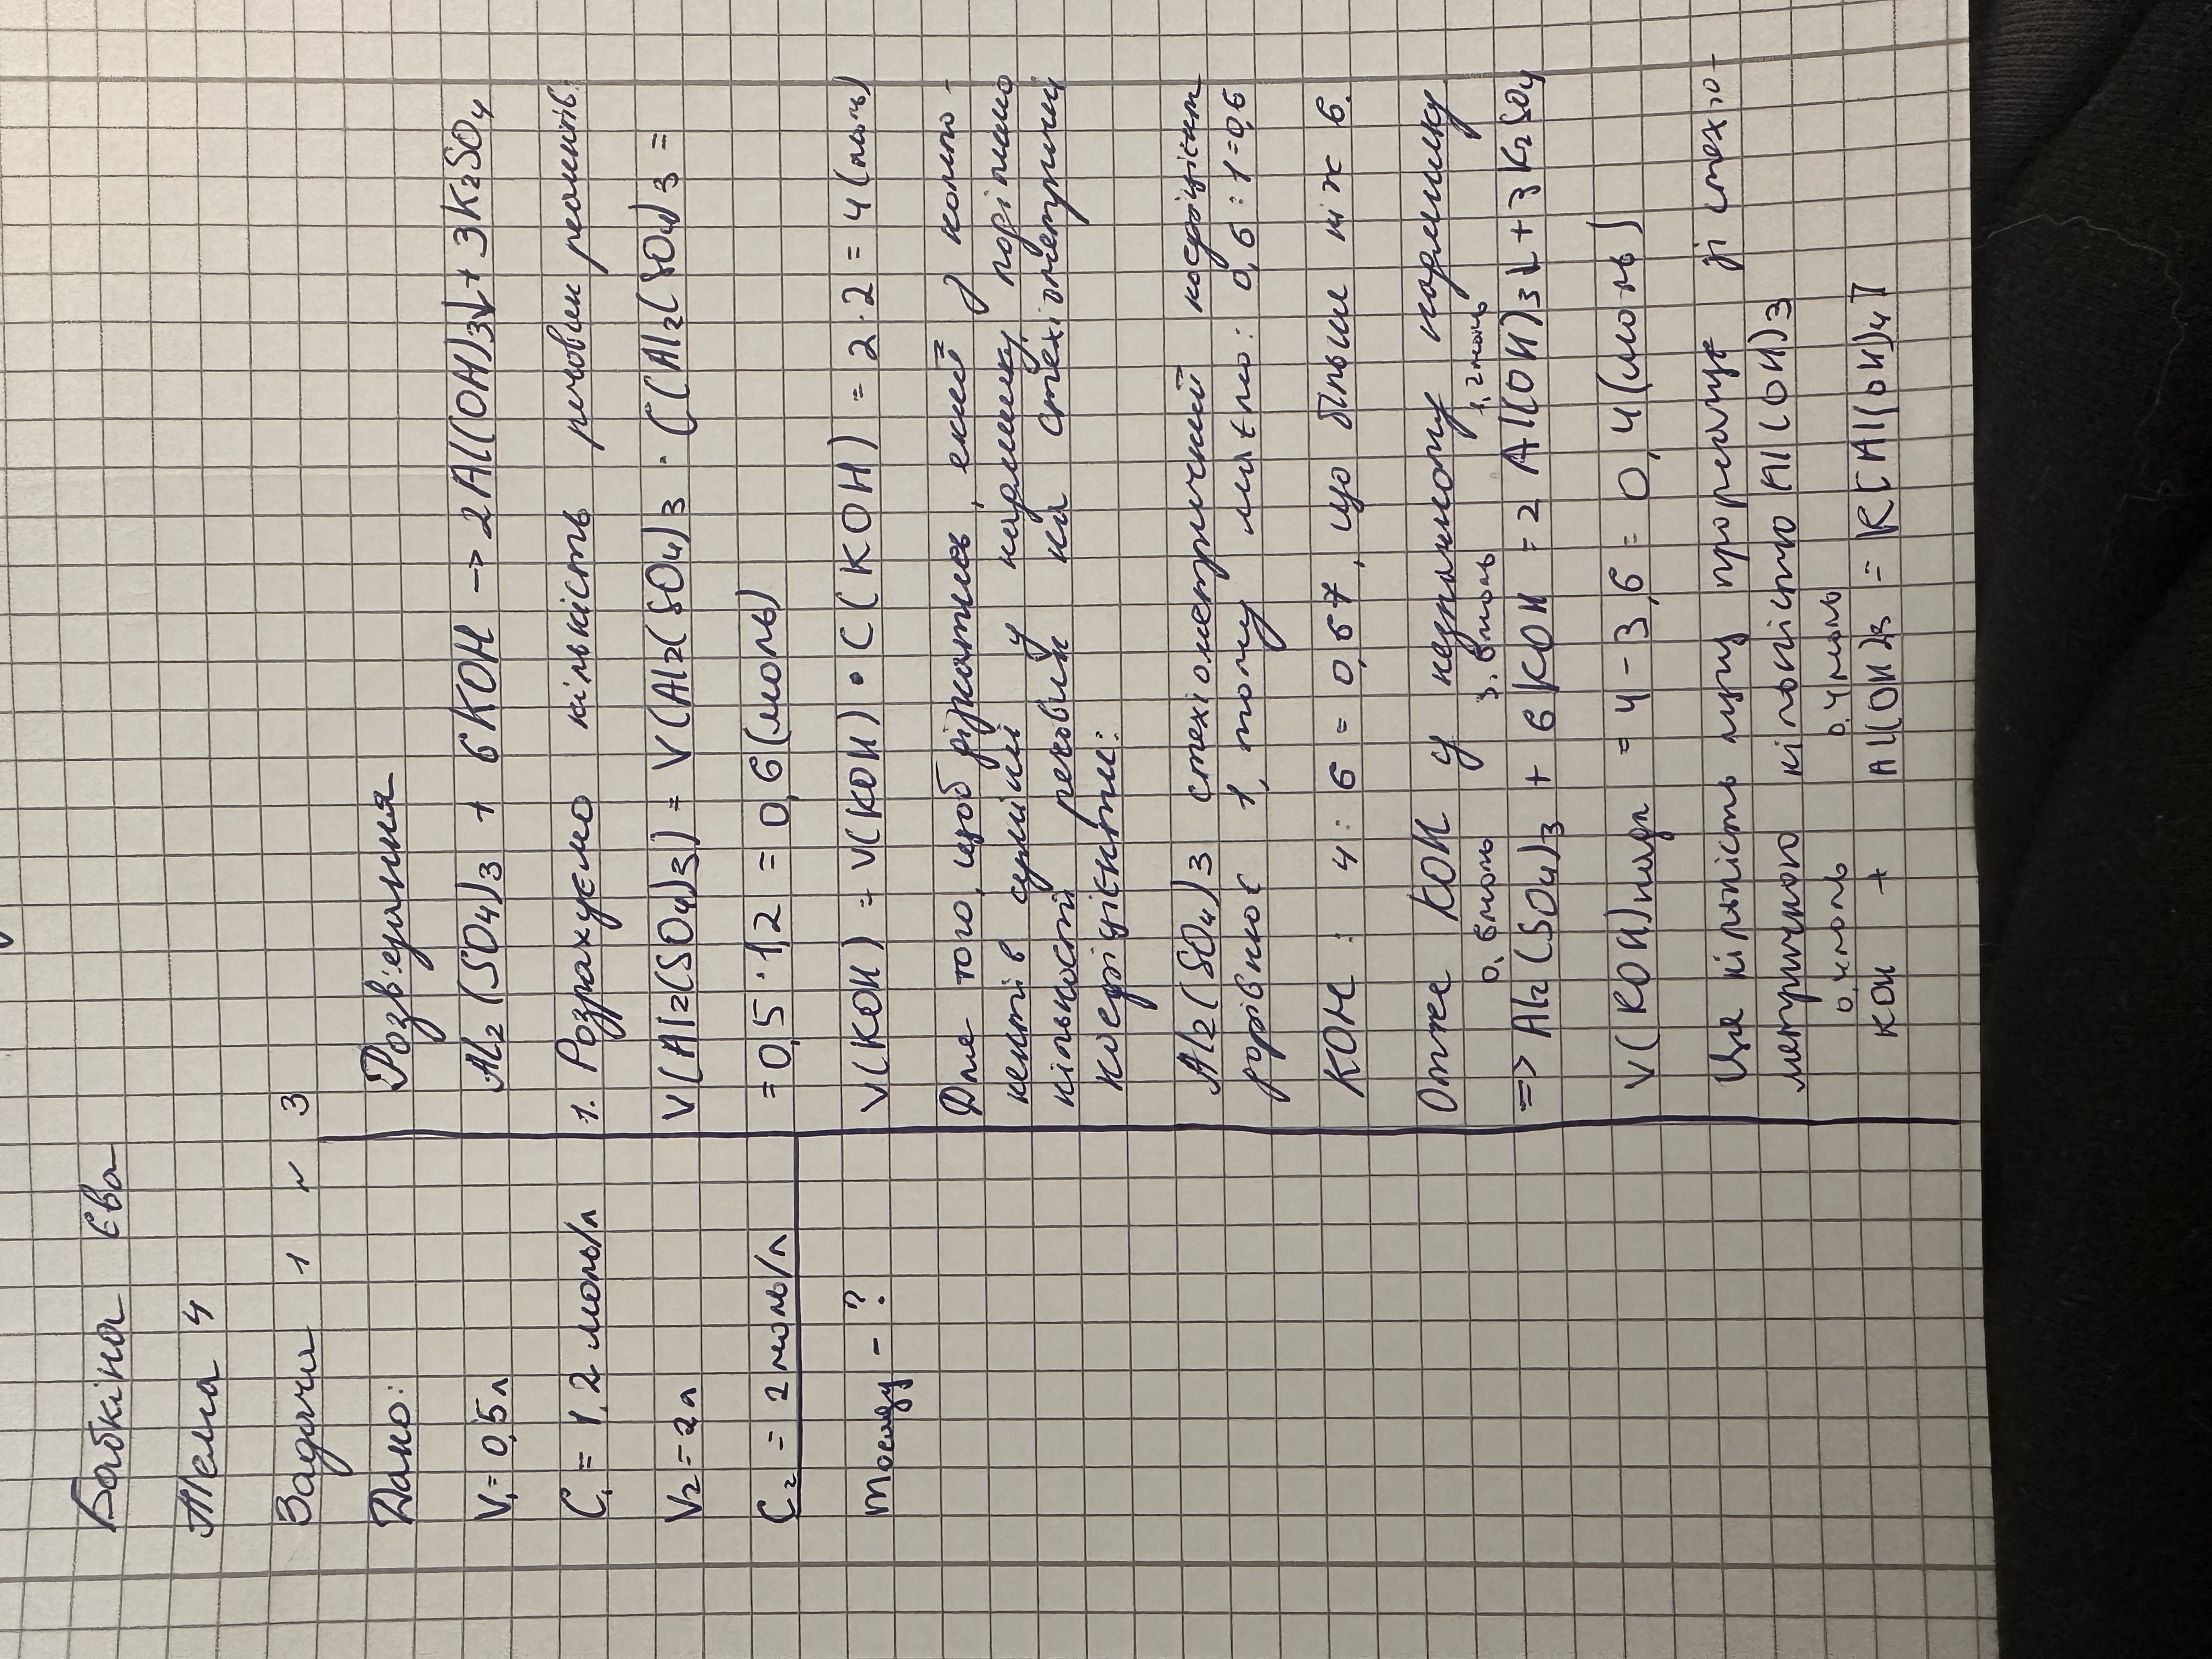 Бабкіна Єва
Тема 4
Задачи 1 ~ 3
Дано:
V₁ = 0,5л
C₁ = 1,2 моль/л
V₂ = 2л
C₂ = 2 моль/л
mосаду - ?
Розв'язання
Al₂(SO₄)₃ + 6KOH → 2Al(OH)₃↓ + 3K₂SO₄
1. Розрахуємо кількість речовин реагентів:
V(Al₂(SO₄)₃) = V(Al₂(SO₄)₃ · C(Al₂(SO₄)₃ =
= 0,5 · 1,2 = 0,6 (моль)
V(KOH) = V(KOH) · C(KOH) = 2 · 2 = 4 (моль)
Для того, щоб дізнатись, який з компо-
нентів суміші у надлишку, поділимо
кількості речовин на стехіометричні
коефіцієнти:
Al₂(SO₄)₃ стехіометричний коефіцієнт
дорівнює 1, тому маємо: 0,6 : 1 = 0,6
KOH : 4 : 6 = 0,67, що більше ніж 6.
Отже KOH у незначному надлишку
0,6моль 3,6моль 1,2моль
=> Al₂(SO₄)₃ + 6KOH = 2Al(OH)₃↓ + 3K₂SO₄
V(KOH)надл = 4 - 3,6 = 0,4 (моль)
Ця кількість лугу прореагує зі стехіо-
метричною кількістю Al(OH)₃
0,4моль 0,4моль
KOH + Al(OH)₃ = K[Al(OH)₄]